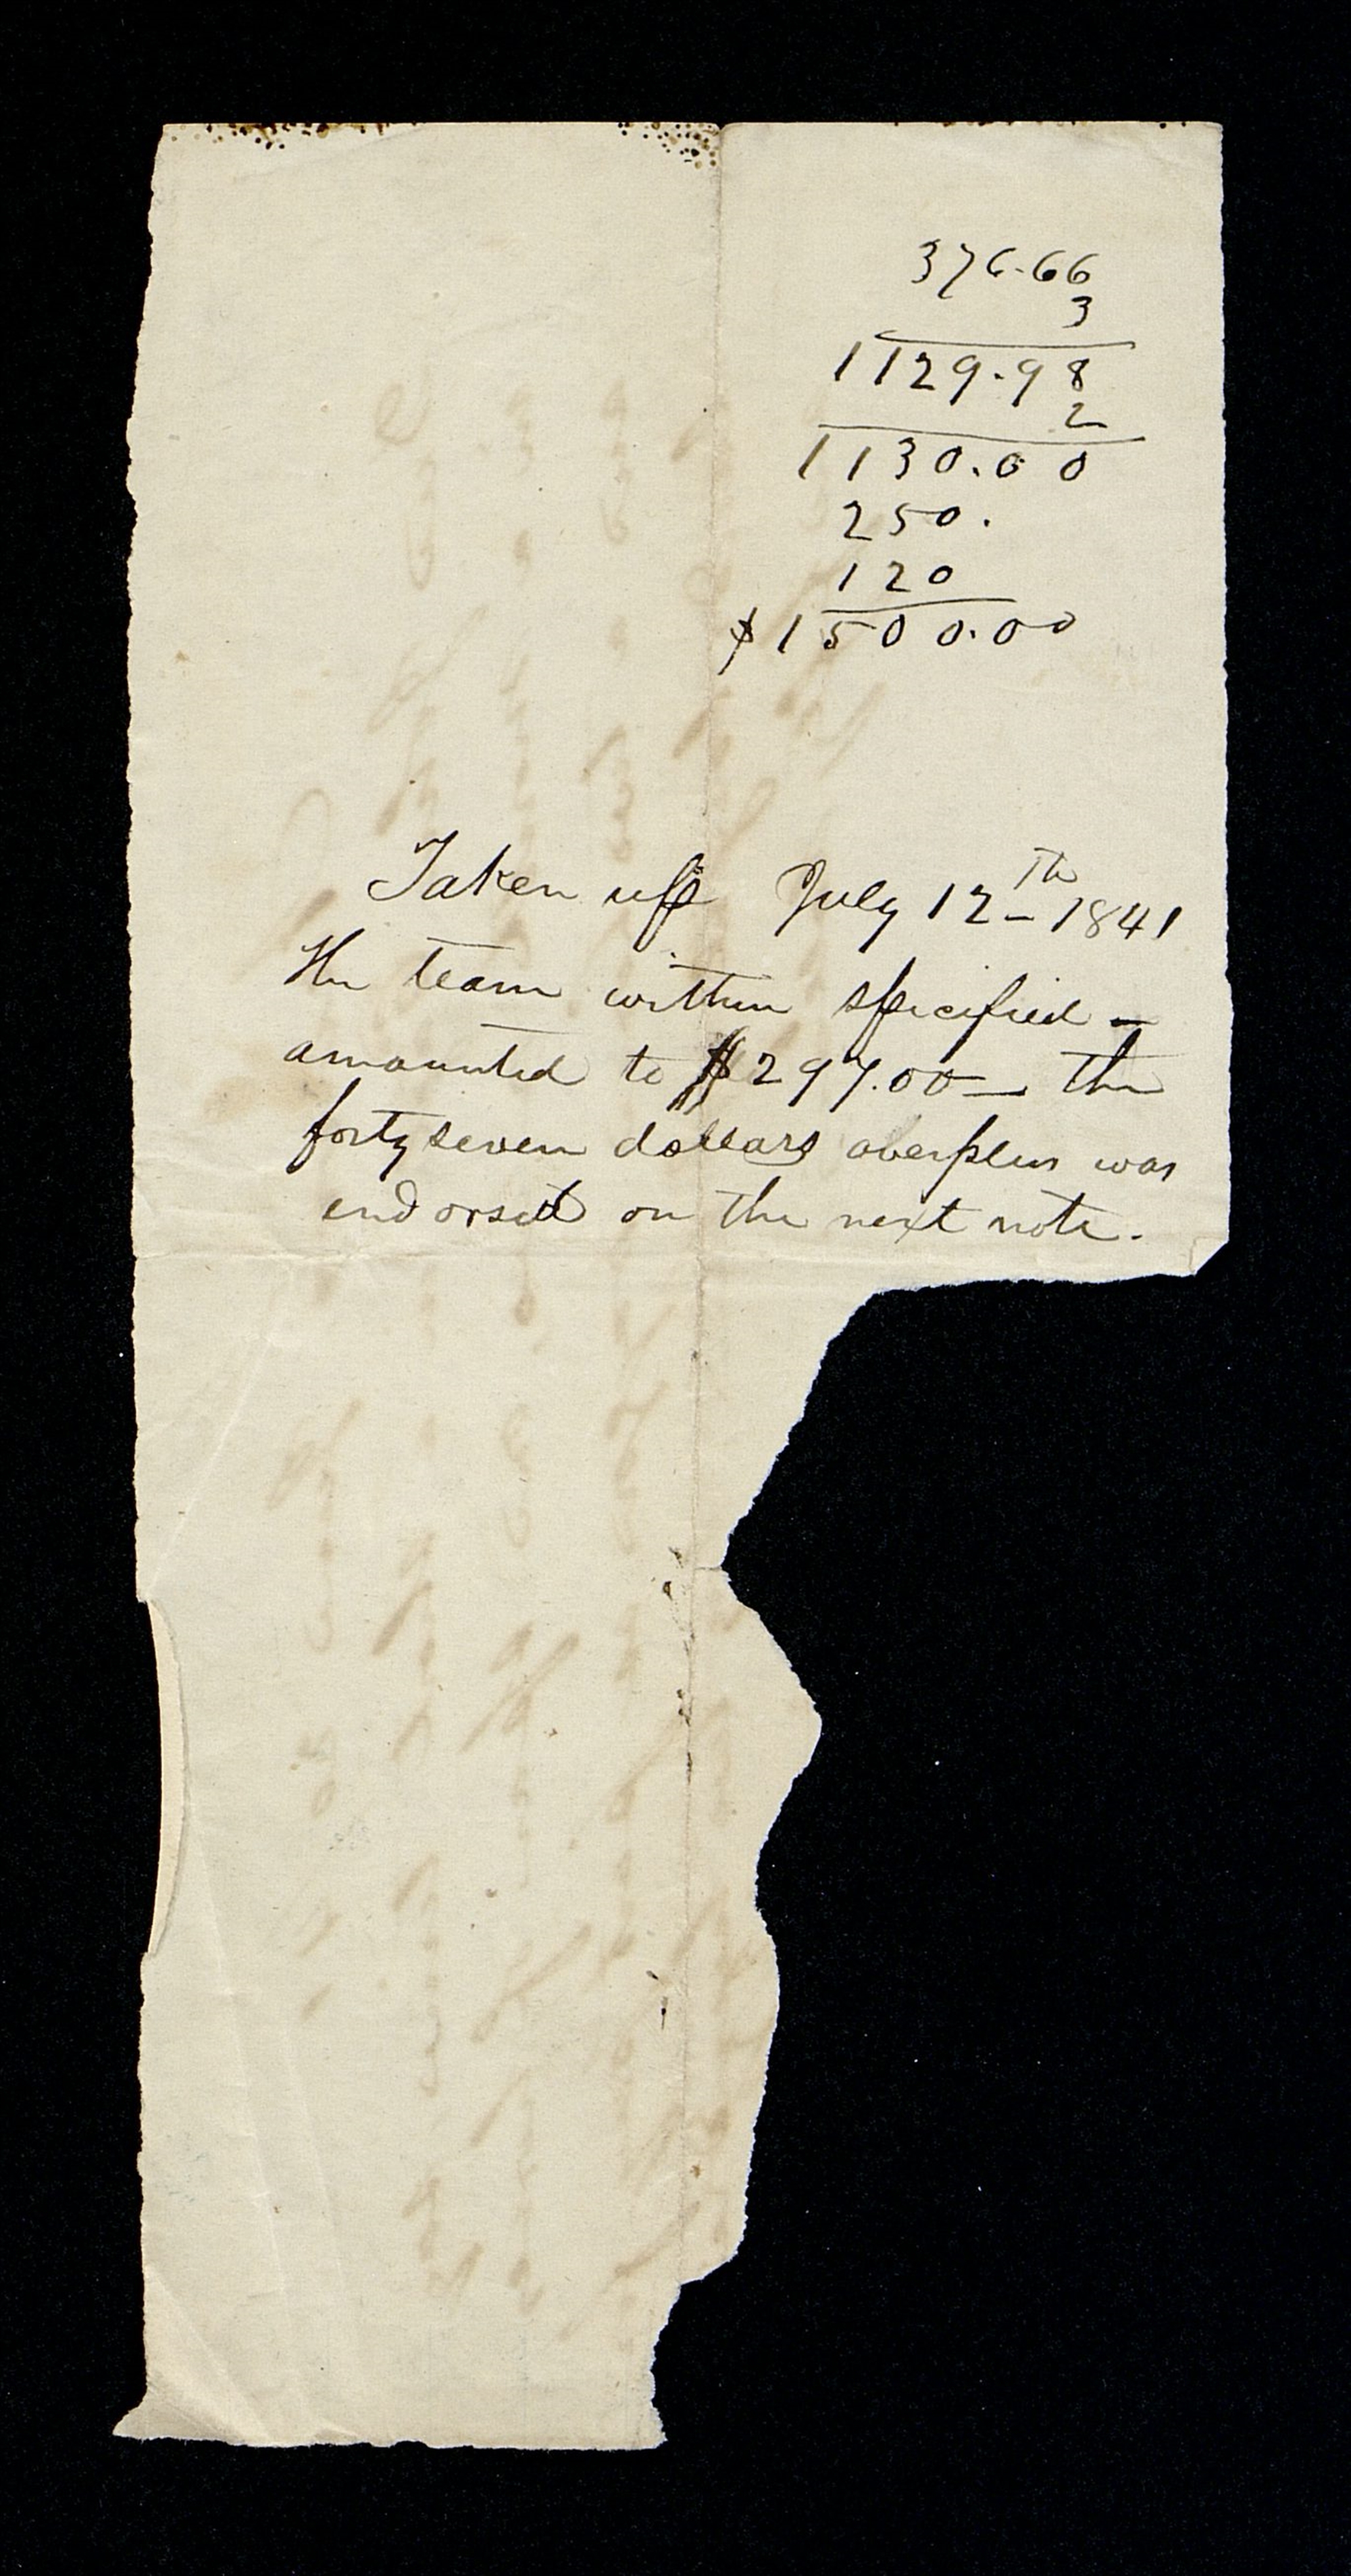 376.66
3
1129.98
2
1130.00
250.
120
$1500.00
Taken up July 12th 1841
The team within specified –
amounted to $297.00 – the
forty seven dollars overplus was
endorsed on the next note.